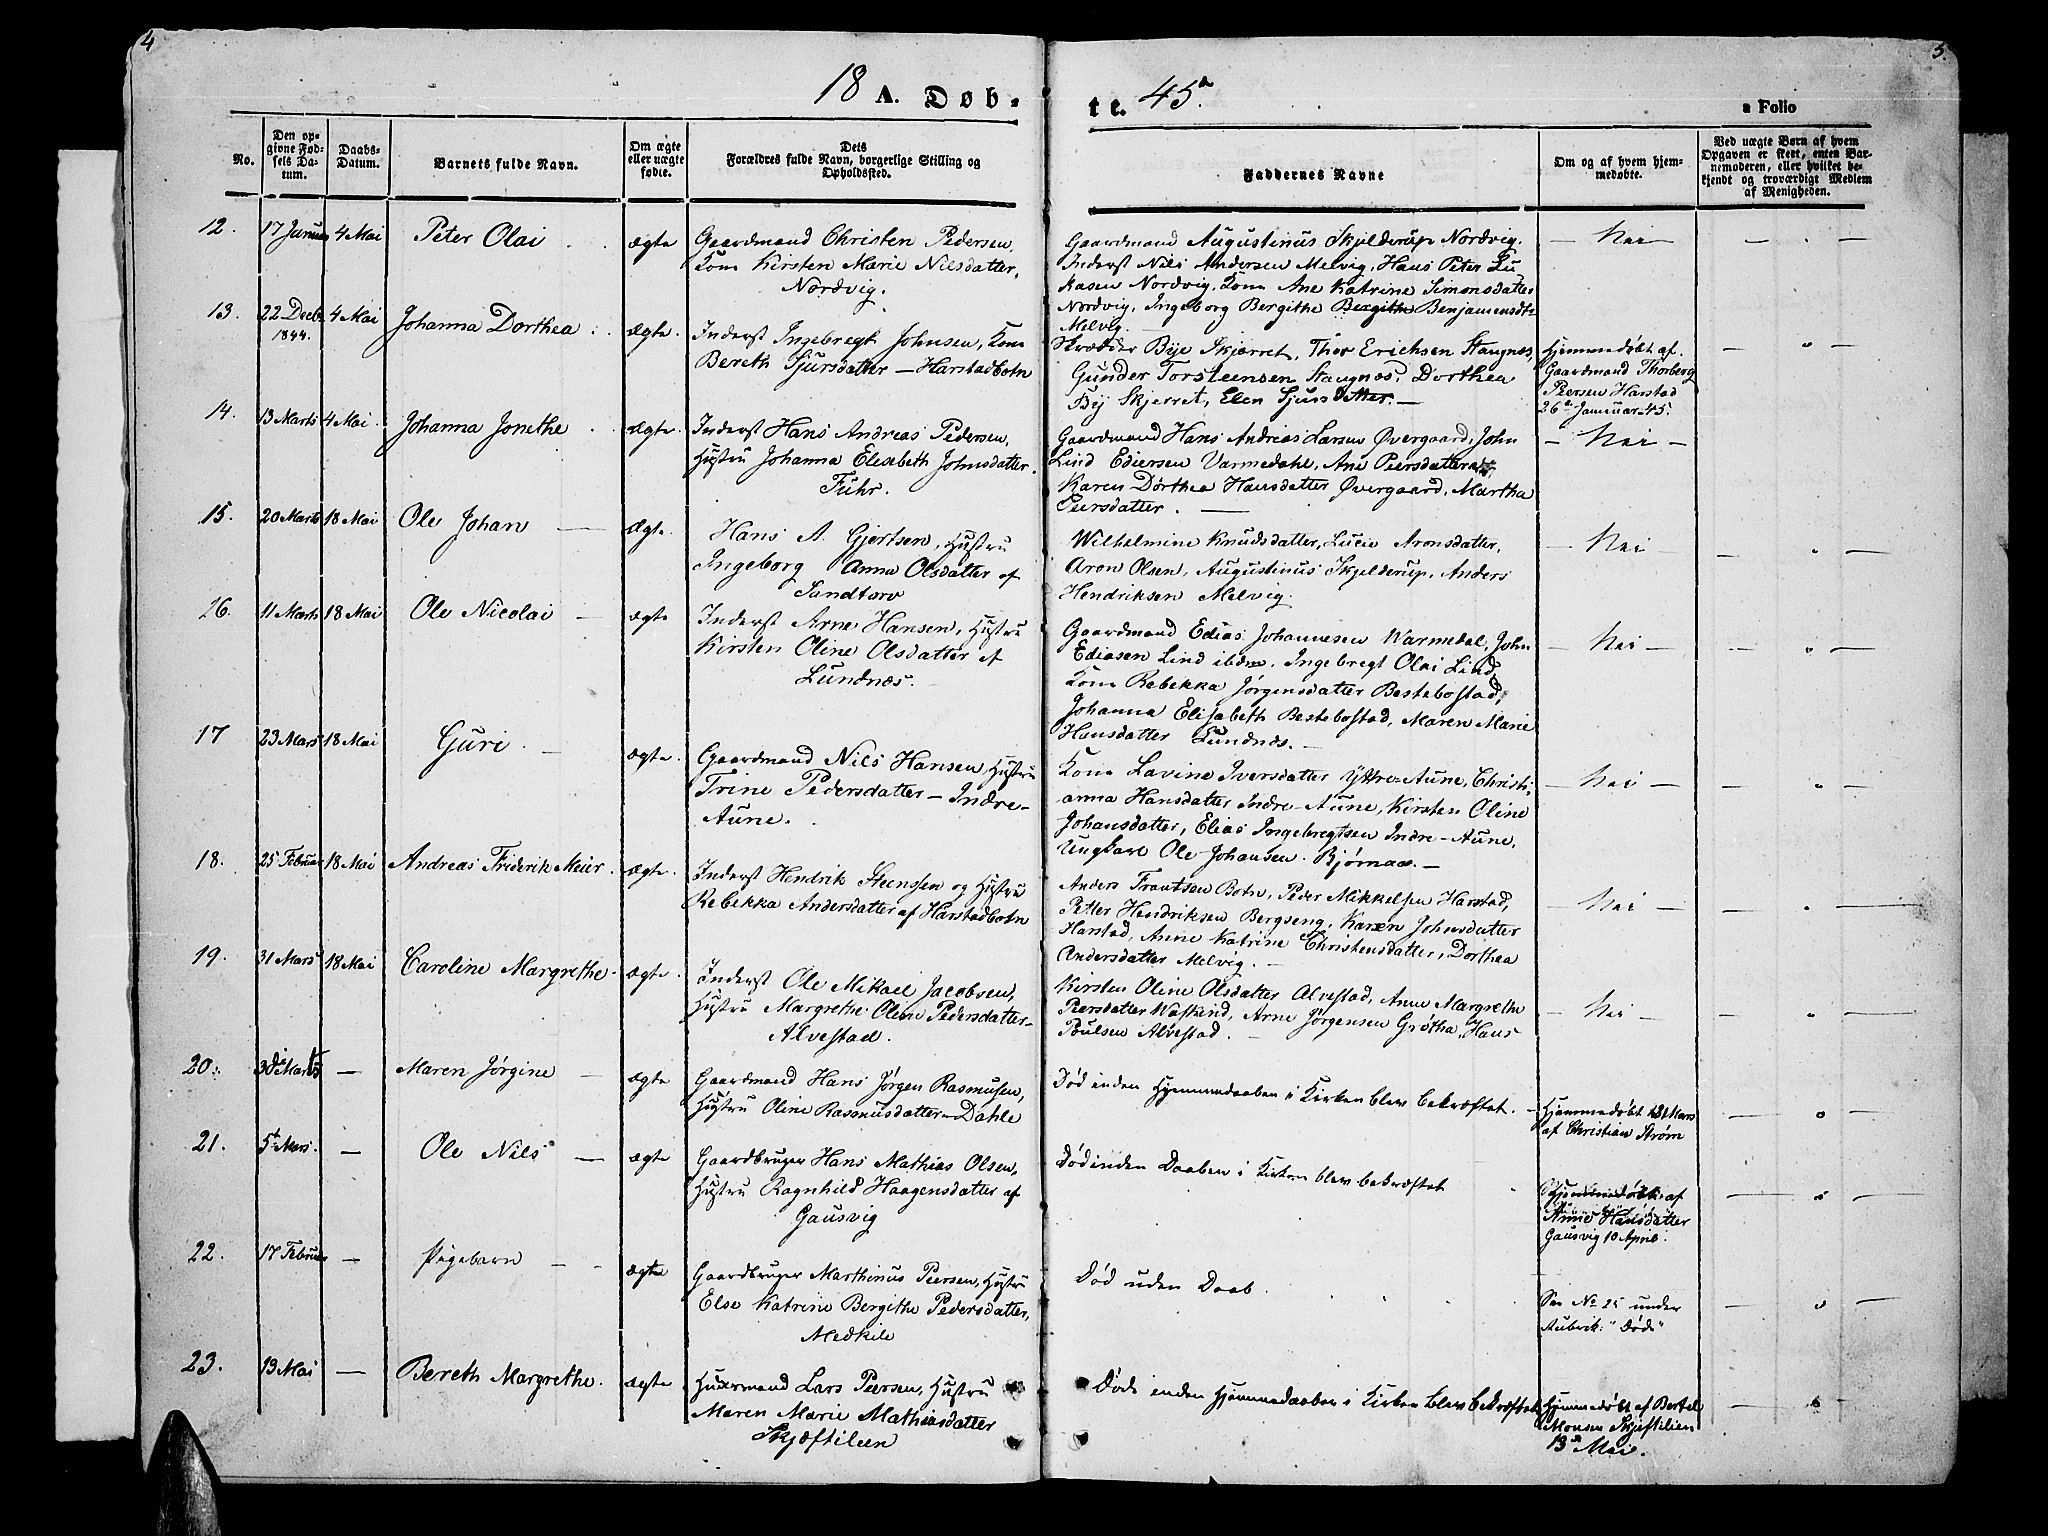 4
5.
18 A. Døb-
te. 45.
a Folio
No.
Den op-
givne Fød-
sels Da-
tum.
Daabs-
Datum.
Barnets fulde Navn.
Om ægte
eller uægte
fødte.
Dets
Forældres fulde Navn, borgerlige Stilling og
Opholdssted.
Faddernes Navne
Om og af hvem hjem-
medøbte.
Ved uægte Børn af hvem
Opgaven er skeet, enten Bar-
nemoderen, eller hvilket be-
kjendt og troværdigt Medlem
af Menigheden.
12. 17 Januar 4 Mai Peter Olai ægte
Gaardmand Christen Pedersen,
Kone Kirsten Marie Nilsdatter,
Nordvig.
Gaardmand Augustinus Skjelderup Nordvig.
Inderst Nils Andersen Melvig, Hans Peter Lu-
kasen Nordvig, Kone Ane Katrine Simonsdatter
Nordvig, Ingeborg Bergithe Bergithe Benjamensdtr
Melvig.
Nei
13. 22 Decbr 1844. 4 Mai Johanna Dorthea ægte.
Inderst Ingebregt Johnsen, Kone
Bereth Sjursdatter — Harstadbotn
Skrædder Bye Skjærret, Thor Erichsen Stangnes,
Gunder Torsteensen Stangnes, Dorthea
By Skjerret, Elen Sjursdatter. —
Hjemmedøbt af
Gaardmand Thorberg
Peersen Harstad
26de Januar 45.
14. 13 Marts 4 Mai Johanna Jonethe ægte.
Inderst Hans Andreas Pedersen,
Hustru Johanna Elisebeth Johnsdatter.
Fuhr.
Gaardmand Hans Andreas Larsen Øvergaard, John
Lind Ediersen Varmedahl, Ane Peersdatter
Karen Dorthea Hansdatter Øvergaard, Martha
Peersdatter. —
— Nei —
15. 20 Marts 18 Mai Ole Johan — ægte.
Hans A. Gjertsen, Hustru
Ingeborg Anna Olsdatter af
Sandtorv
Wilhelmine Knudsdatter, Lucie Aronsdatter,
Aron Olsen, Augustinus Skjelderup, Anders
Hendriksen Melvig.
— Nei
16. 11 Marts 18 Mai Ole Nicolai — ægte
Inderst Arne Hansen, Hustru
Kirsten Oline Olsdatter af
Lundnæs.
Gaardmand Edias Johannesen Warmedal, John
Ediasen Lind ibdm, Ingebregt Olai Lind,
Kone Rebekka Jørgensdatter Bestebostad,
Johanna Elisabeth Bestebostad, Maren Marie
Hansdatter Lundnæs. —
— Nei —
17 23 Mars 18 Mai Guri. — ægte.
Gaardmand Nils Hansen, Hustru
Trine Pedersdatter — Indre-
Aune.
Kone Lavine Iversdatter Yttre-Aune, Christi-
anna Hansdatter Indre-Aune, Kirsten Oline
Johansdatter, Elias Ingebregtsen Indre-Aune,
Ungkarl Ole Johansen. Bjørnaae. —
— Nei —
18. 25 Februar 18 Mai Andreas Friderik Meier. ægte.
Inderst Hendrik Steenssen og Hustru
Rebekka Andersdatter af Harstadbotn
Anders Frantsen Botn, Peder Mikkelsen Harstad,
Petter Hendriksen Bergseng, Karen Johnsdatter
Harstad, Anne Katrine Christensdatter, Dorthea
Andersdatter Melvig. —
— Nei —
19. 31 Mars 18 Mai Caroline Margrethe. ægte.
Inderst Ole Mikael Jacobsen,
Hustru Margrethe Oline Pedersdatter
Alvestad.
Kirsten Oline Olsdatter Alvestad, Anne Margrethe
Peersdatter, Arne Jørgensen Grøtha, Hans
Poulsen Alvestad. —
— Nei —
20. 30 Marts — Maren Jørgine — ægte
Gaardmand Hans Jørgen Rasmusen,
Hustru Oline Rasmusdatter — Dahle
Død inden Hjemmedaaben i Kirken blev bekræftet. —
Hjemmedøbt 31 Mars
af Christian Strøm
21. 5t Mars. — Ole Nils — ægte
Gaardbruger Hans Mathias Olsen,
Hustru Ragnhild Haagensdatter af
Gausvig
Død inden Daaben i Kirken blev bekræftet
Hjemmedøbt af
Anne Hansdatter
Gausvig 10 April.
22. 17 Februar — Pigebarn — ægte
Gaardbruger Marthinus Peersen, Hustru
Else Katrine Bergithe Pedersdatter,
Medkile
Død uden Daab.
See No 25 under
Rubrik: "Døde"
23. 13 Mai — Bereth Margrethe. ægte
Huusmand Lars Peersen, Hustru
Maren Marie Mathiasdatter
Skjæftileen
Døde inden Hjemmedaaben i Kirken blev bekræftet
Hjemmedøbt af Bertel
Monsen Skjeftilien
13de Mai.